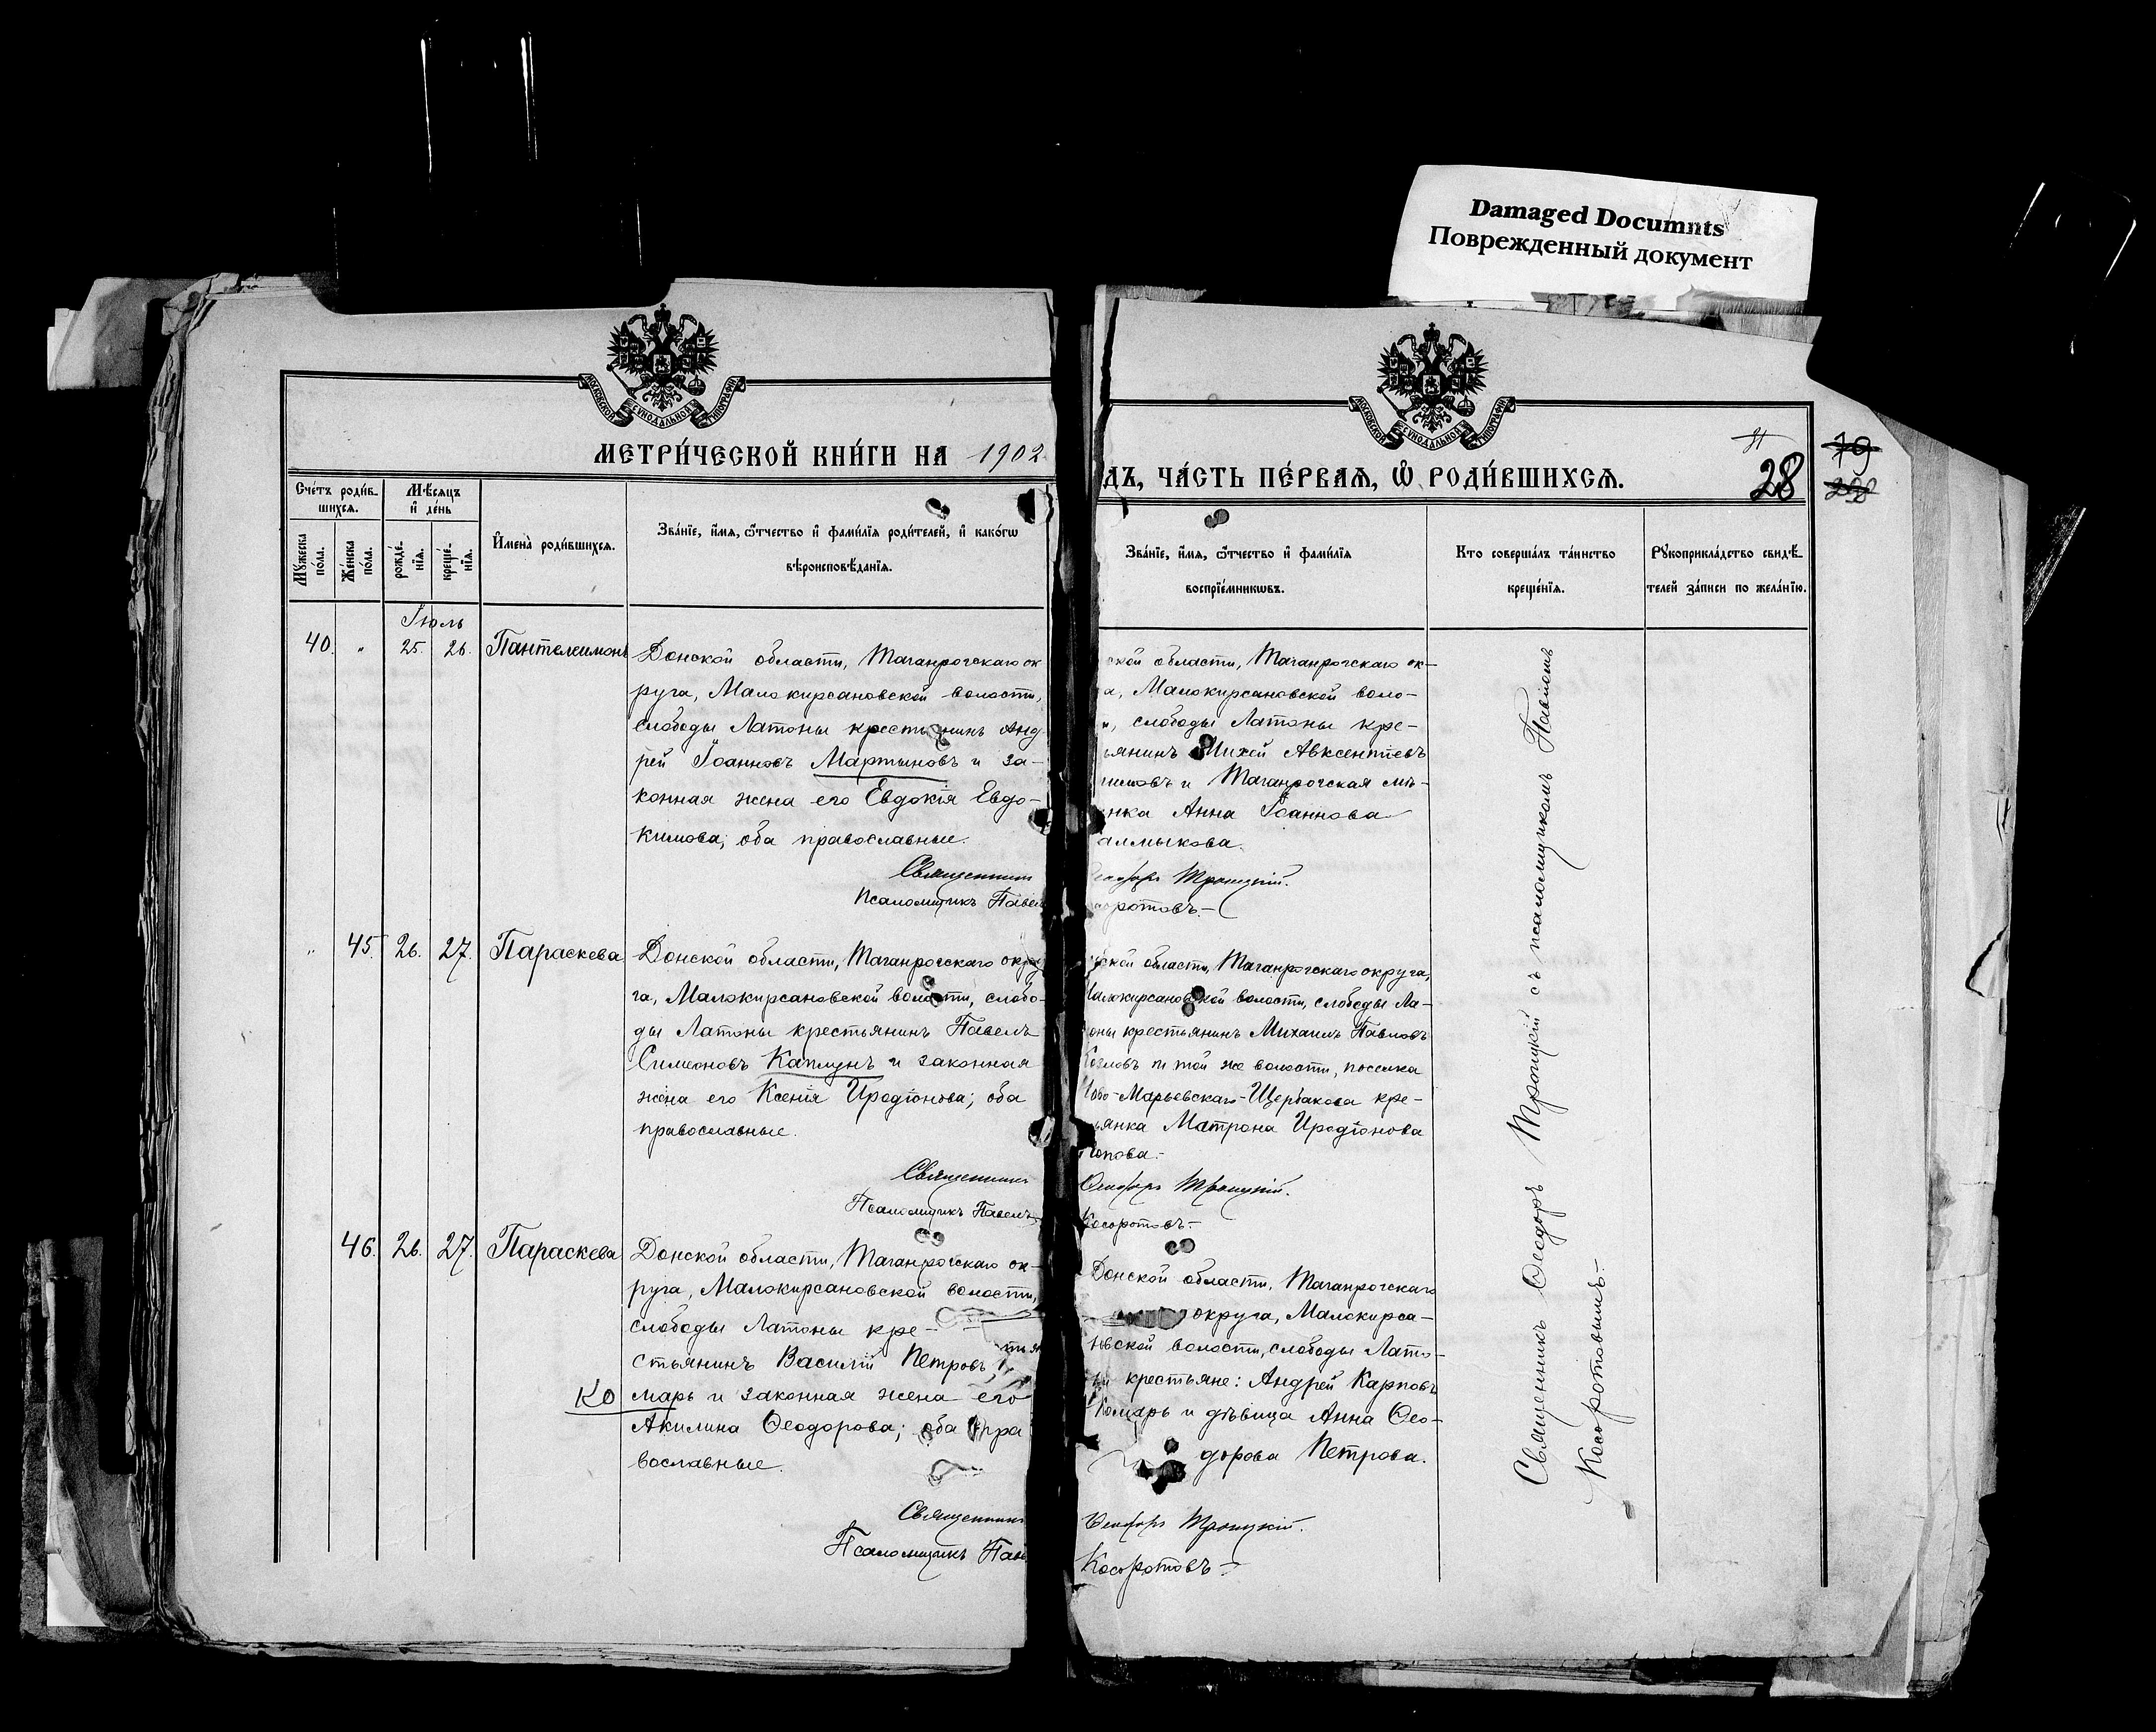 Damaged Documnts
Поврежденный документ
МОСКОВСКОЙ СѴНОДАЛЬНОЙ ТИПОГРАФІИ
МОСКОВСКОЙ СѴНОДАЛЬНОЙ ТИПОГРАФІИ
МЕТРИ́ЧЕСКОЙ КНИ́ГИ НА 1902
ДЪ, ЧА́СТЬ ПЕ́РВАѦ, Ѽ РОДИ́ВШИХСѦ.
28
19
Сче́тъ роди́в-
шихсѧ.
Мꙋ́жеска по́ла.
Же́нска по́ла.
Мѣ́сѧцъ и҆ де́нь
рожде́-нїѧ.
креще́-нїѧ.
И҆мена̀ роди́вшихсѧ.
Зва́нїе, и҆́мѧ, ѻ҆́тчество и҆ фами́лїѧ роди́телей, и҆ како́гѡ
вѣроисповѣ́данїѧ.
Зва́нїе, и҆́мѧ, ѻ҆́тчество и҆ фами́лїѧ
воспрїе́мникѡвъ.
Кто соверша́лъ та́инство
креще́нїѧ.
Рꙋкоприкла́дство свидѣ́-
телей за́писи по жела́нїю.
Іюль
40. " 25. 26. Пантелеимонъ
Донской области, Таганрогскаго ок
руга, Малокирсановской волости,
слободы Латоны крестьянинъ Анд
рей Іоанновъ Мартыновъ и за-
конная жена его Евдокія Евдо-
кимова, оба православные.
Священник
Псаломщикъ Павел
ской области, Таганрогскаго ок-
а, Малокирсановской воло-
и, слободы Латоны кре-
ьянинъ Михей Авксентіевъ
и Таганрогская мѣ-
нка Анна Іоаннова
алмыкова.
Ѳеодоръ Троицкій.
оротовъ.-
" 45. 26. 27. Параскева
Донской области, Таганрогскаго окру
га, Малокирсановской волости, слобо-
ды Латоны крестьянинъ Павелъ
Симеоновъ Каплунъ и законная
жена его Ксенія Иродіонова; оба
православные.
Священникъ
Псаломщикъ Павелъ
ской области, Таганрогскаго округа,
Малокирсановской волости, слободы Ла-
оны крестьянинъ Михаилъ Павловъ
Козловъ и той же волости, поселка
Ново-Марьевскаго-Щербакова кре-
ьянка Матрона Иродіонова
Попова.-
Ѳеодоръ Троицкій.
Косоротовъ.-
46. 26. 27. Параскева
Донской области, Таганрогскаго ок-
руга, Малокирсановской волости,
слободы Латоны кре-
стьянинъ Василій Петровъ
Ко марь и законная жена его
Акилина Ѳеодорова; оба пра
вославные.
Священникъ
Псаломщикъ Паве
Донской области, Таганрогскаго
округа, Малокирса-
новской волости, слободы Лато-
ны крестьяне: Андрей Карповъ
Комарь и дѣвица Анна Ѳео-
дорова Петрова.
Ѳеодоръ Троицкій.
Косоротовъ.-
Священникъ Ѳеодоръ Троицкій съ псаломщикомъ Павломъ
Косоротовымъ.-